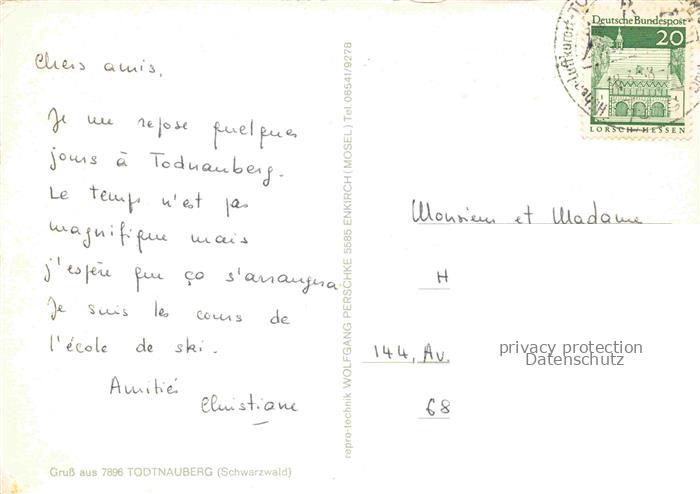 Chers amis,
Je me repose quelques
jours à Todnauberg.
Le temps n'est pas
magnifique mais
j'espère que ça s'arrangera
Je suis les cours de
l'école de ski.
Amitiés
Christiane
Gruß aus 7896 TODTNAUBERG (Schwarzwald)
repro-technik WOLFGANG PERSCHKE 5585 ENKIRCH (MOSEL) Tel. 08541/9278
Deutsche Bundespost
20
LORSCH/HESSEN
Monsieur et Madame
H
144, Av.
privacy protection
Datenschutz
68